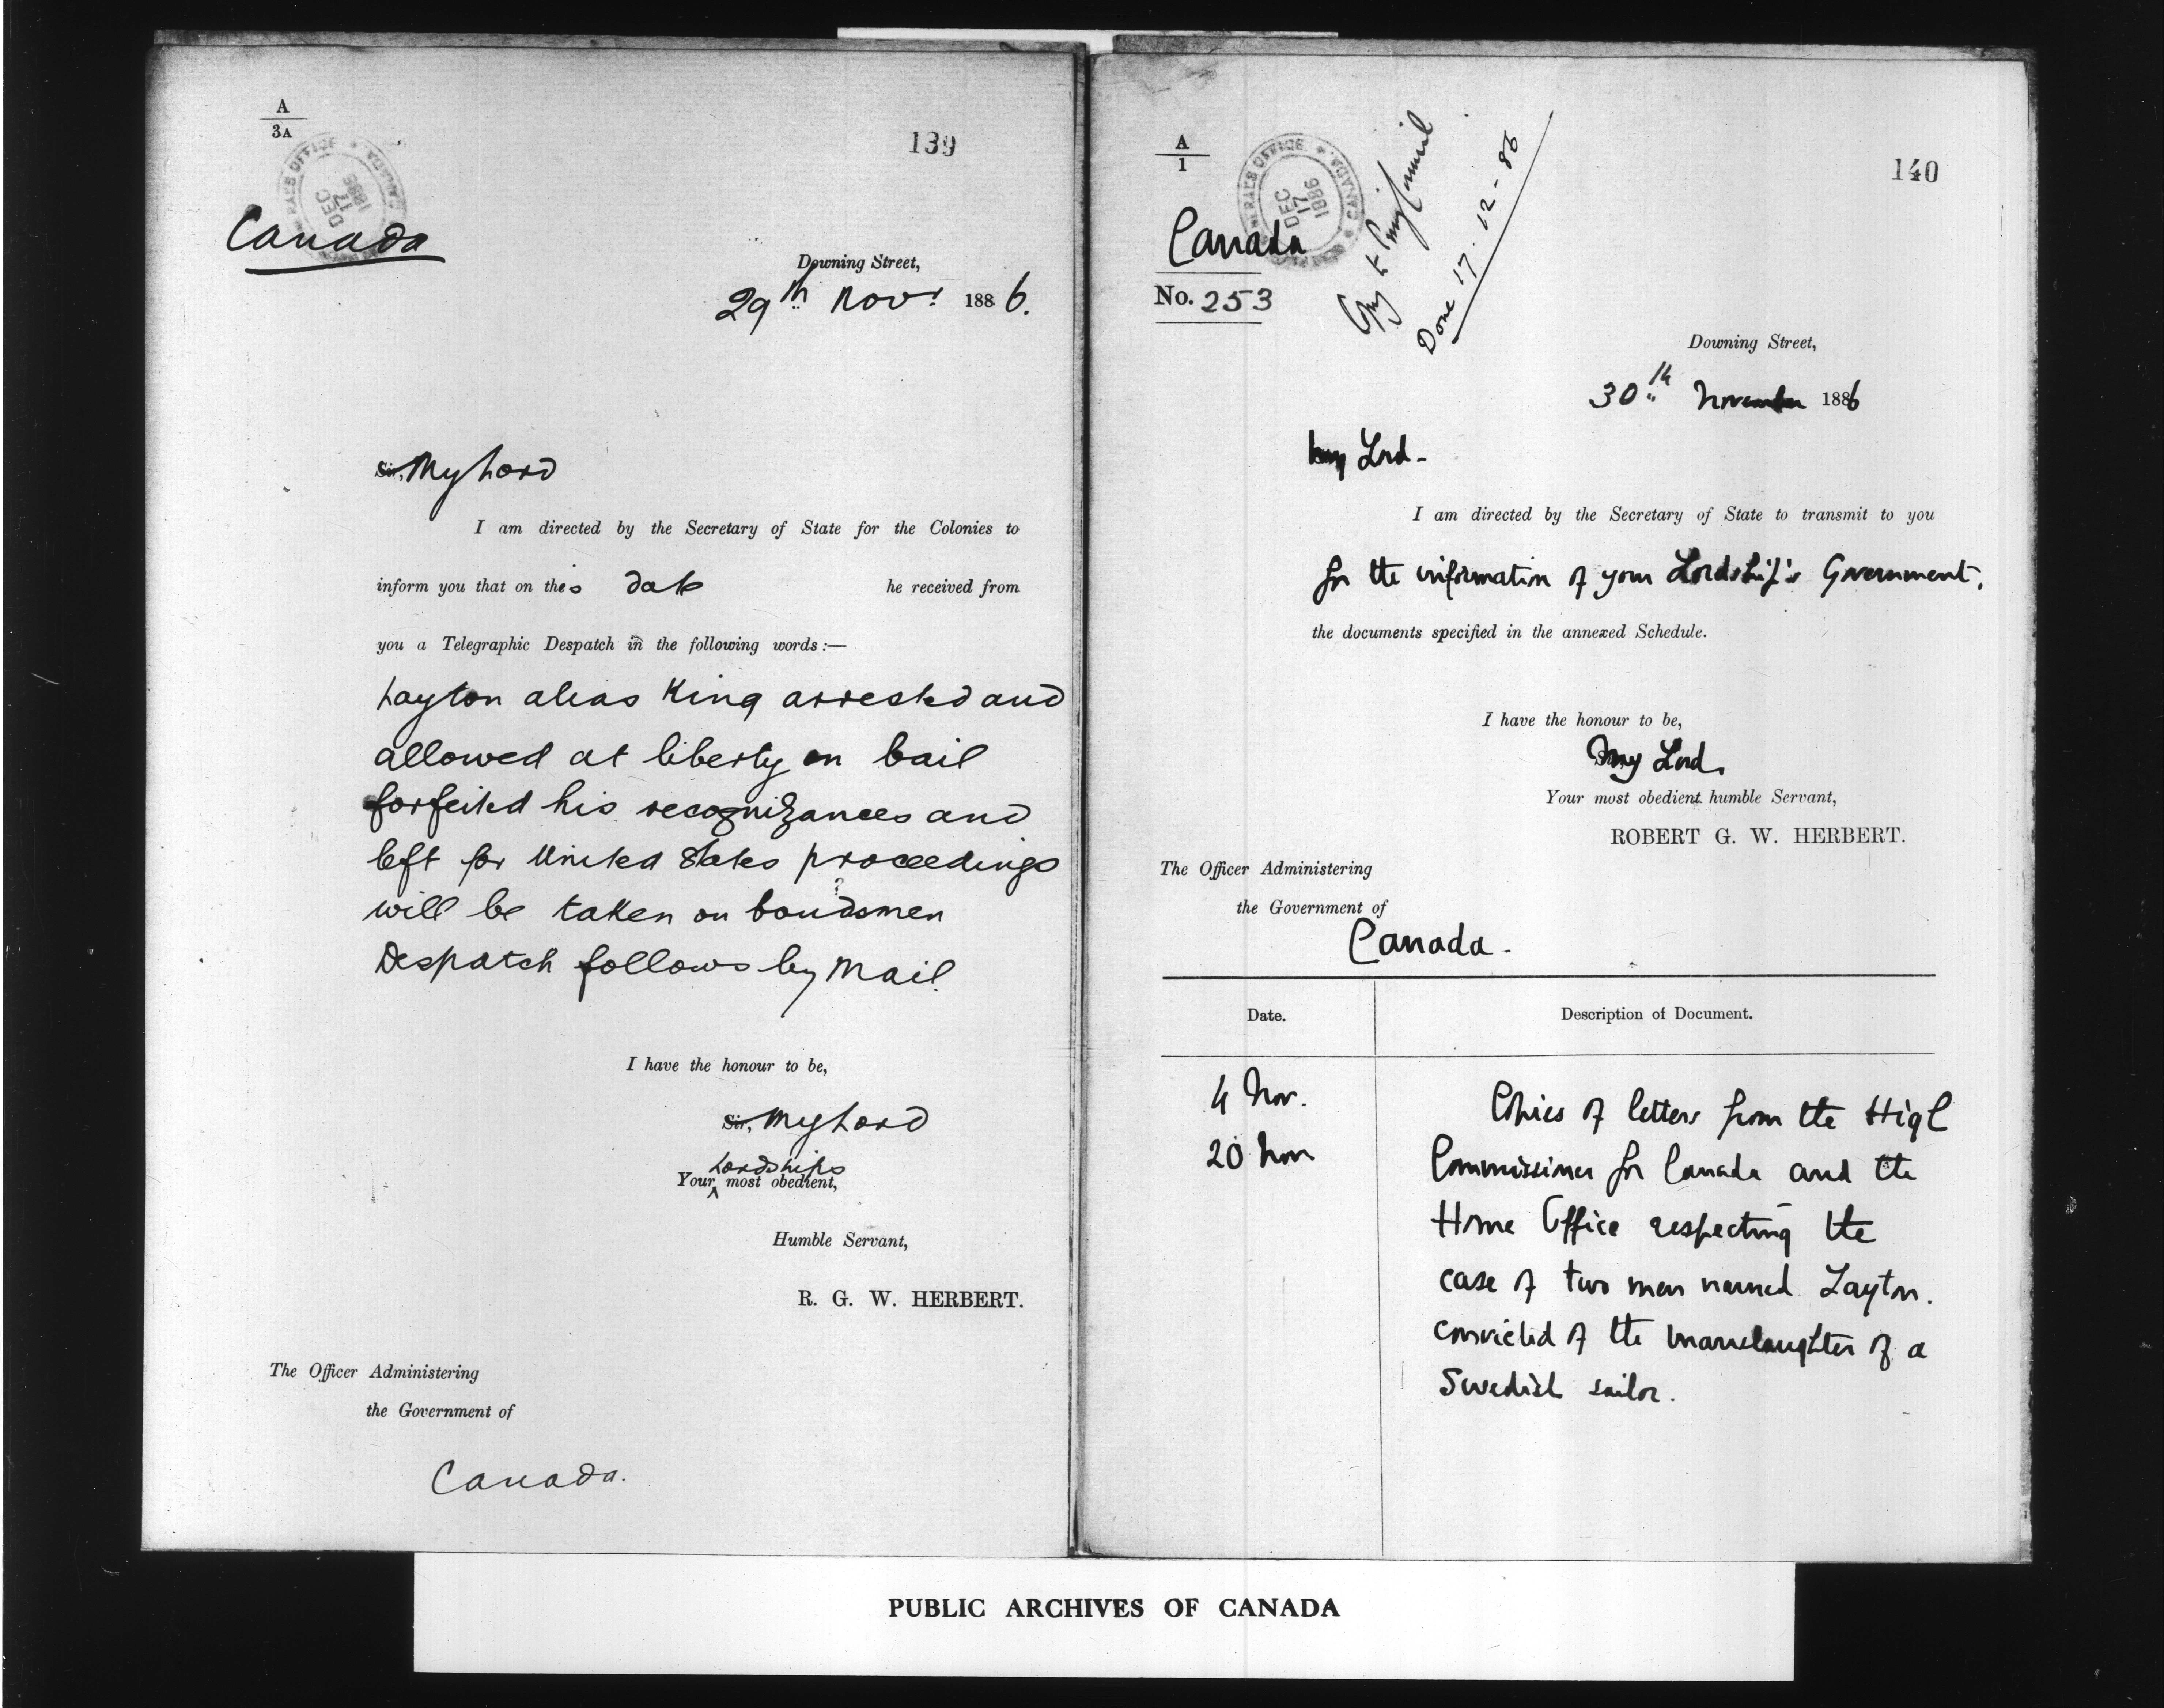 A
3A
139
RAL'S OFFICE
CANADA
DEC
17
1886
Canada
Downing Street,
29th Novr 1886.
Sir, My Lord
I am directed by the Secretary of State for the Colonies to
inform you that on this date he received from
you a Telegraphic Despatch in the following words:—
Layton alias King arrested and
allowed at liberty on bail
forfeited his recognizances and
left for United States proceedings
will be taken on bondsmen
Despatch follows by Mail.
I have the honour to be,
Sir, My Lord
Lordships
Your most obedient,
Humble Servant,
R. G. W. HERBERT.
The Officer Administering
the Government of
Canada.
A
1
140
RAL'S OFFICE
CANADA
DEC
17
1886
Copy to Privy Council
Done 17-12-86
Canada
No. 253
Downing Street,
30th November 1886
My Lord-
I am directed by the Secretary of State to transmit to you
for the information of your Lordship's Government,
the documents specified in the annexed Schedule.
I have the honour to be,
My Lord,
Your most obedient humble Servant,
ROBERT G. W. HERBERT.
The Officer Administering
the Government of
Canada-
Date. Description of Document.
4 Nov.
20 Nov
Copies of letters from the High
Commissioner for Canada and the
Home Office respecting the
case of two men named Layton.
convicted of the manslaughter of a
Swedish sailor.
PUBLIC ARCHIVES OF CANADA